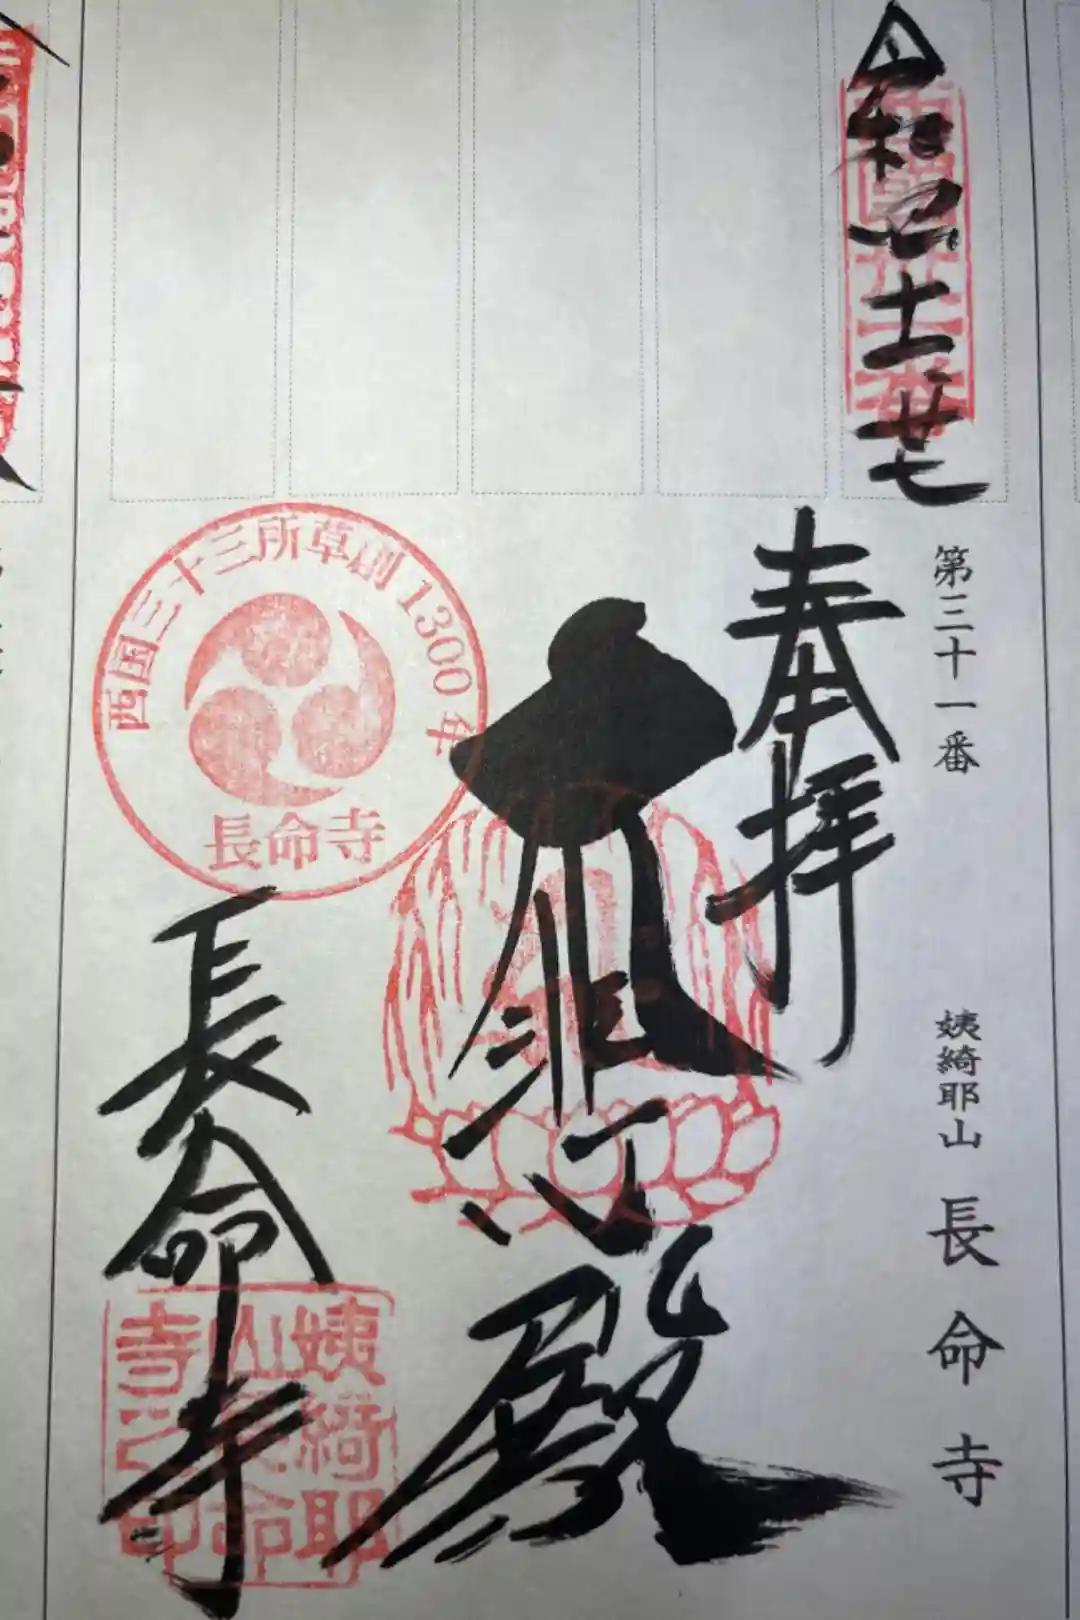 令和
十一
廿七
西國卅一番
第三十一番
姨綺耶山 長命寺
奉拝
大悲殿
西国三十三所草創1300年
長命寺
長命寺
姨綺耶
山長命
寺之印